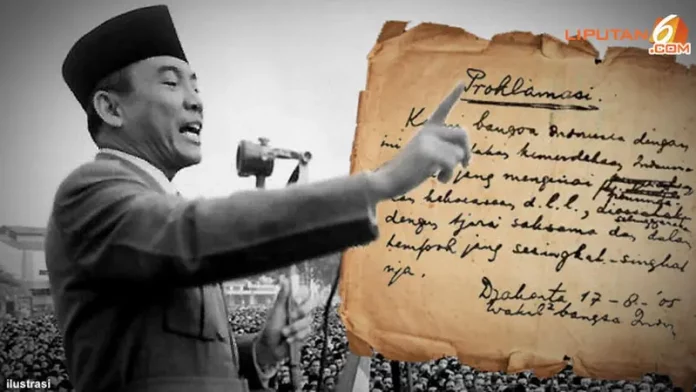 LIPUTAN 6
.COM
Proklamasi.
bangsa Indonesia dengan
ini kemerdekaan
jang mengenai
kekoeasaan d.l.l., 
dengan tjara saksama dan dalam
tempoh jang sesingkat-singkat
nja.
Djakarta 17-8-'05
Wakil2 bangsa Indon
ilustrasi